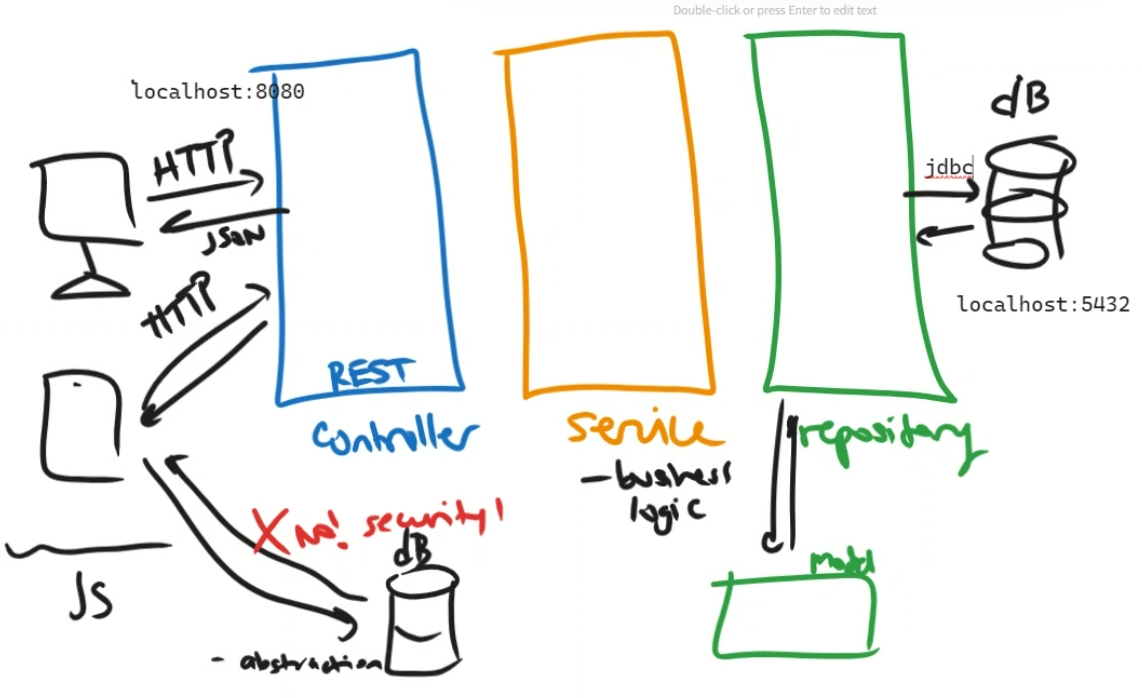 Double-click or press Enter to edit text
localhost:8080
HTTP
JSON
HTTP
REST
controller
service
- business
logic
repository
jdbc
dB
localhost:5432
Model
X No! security!
dB
- abstraction
JS